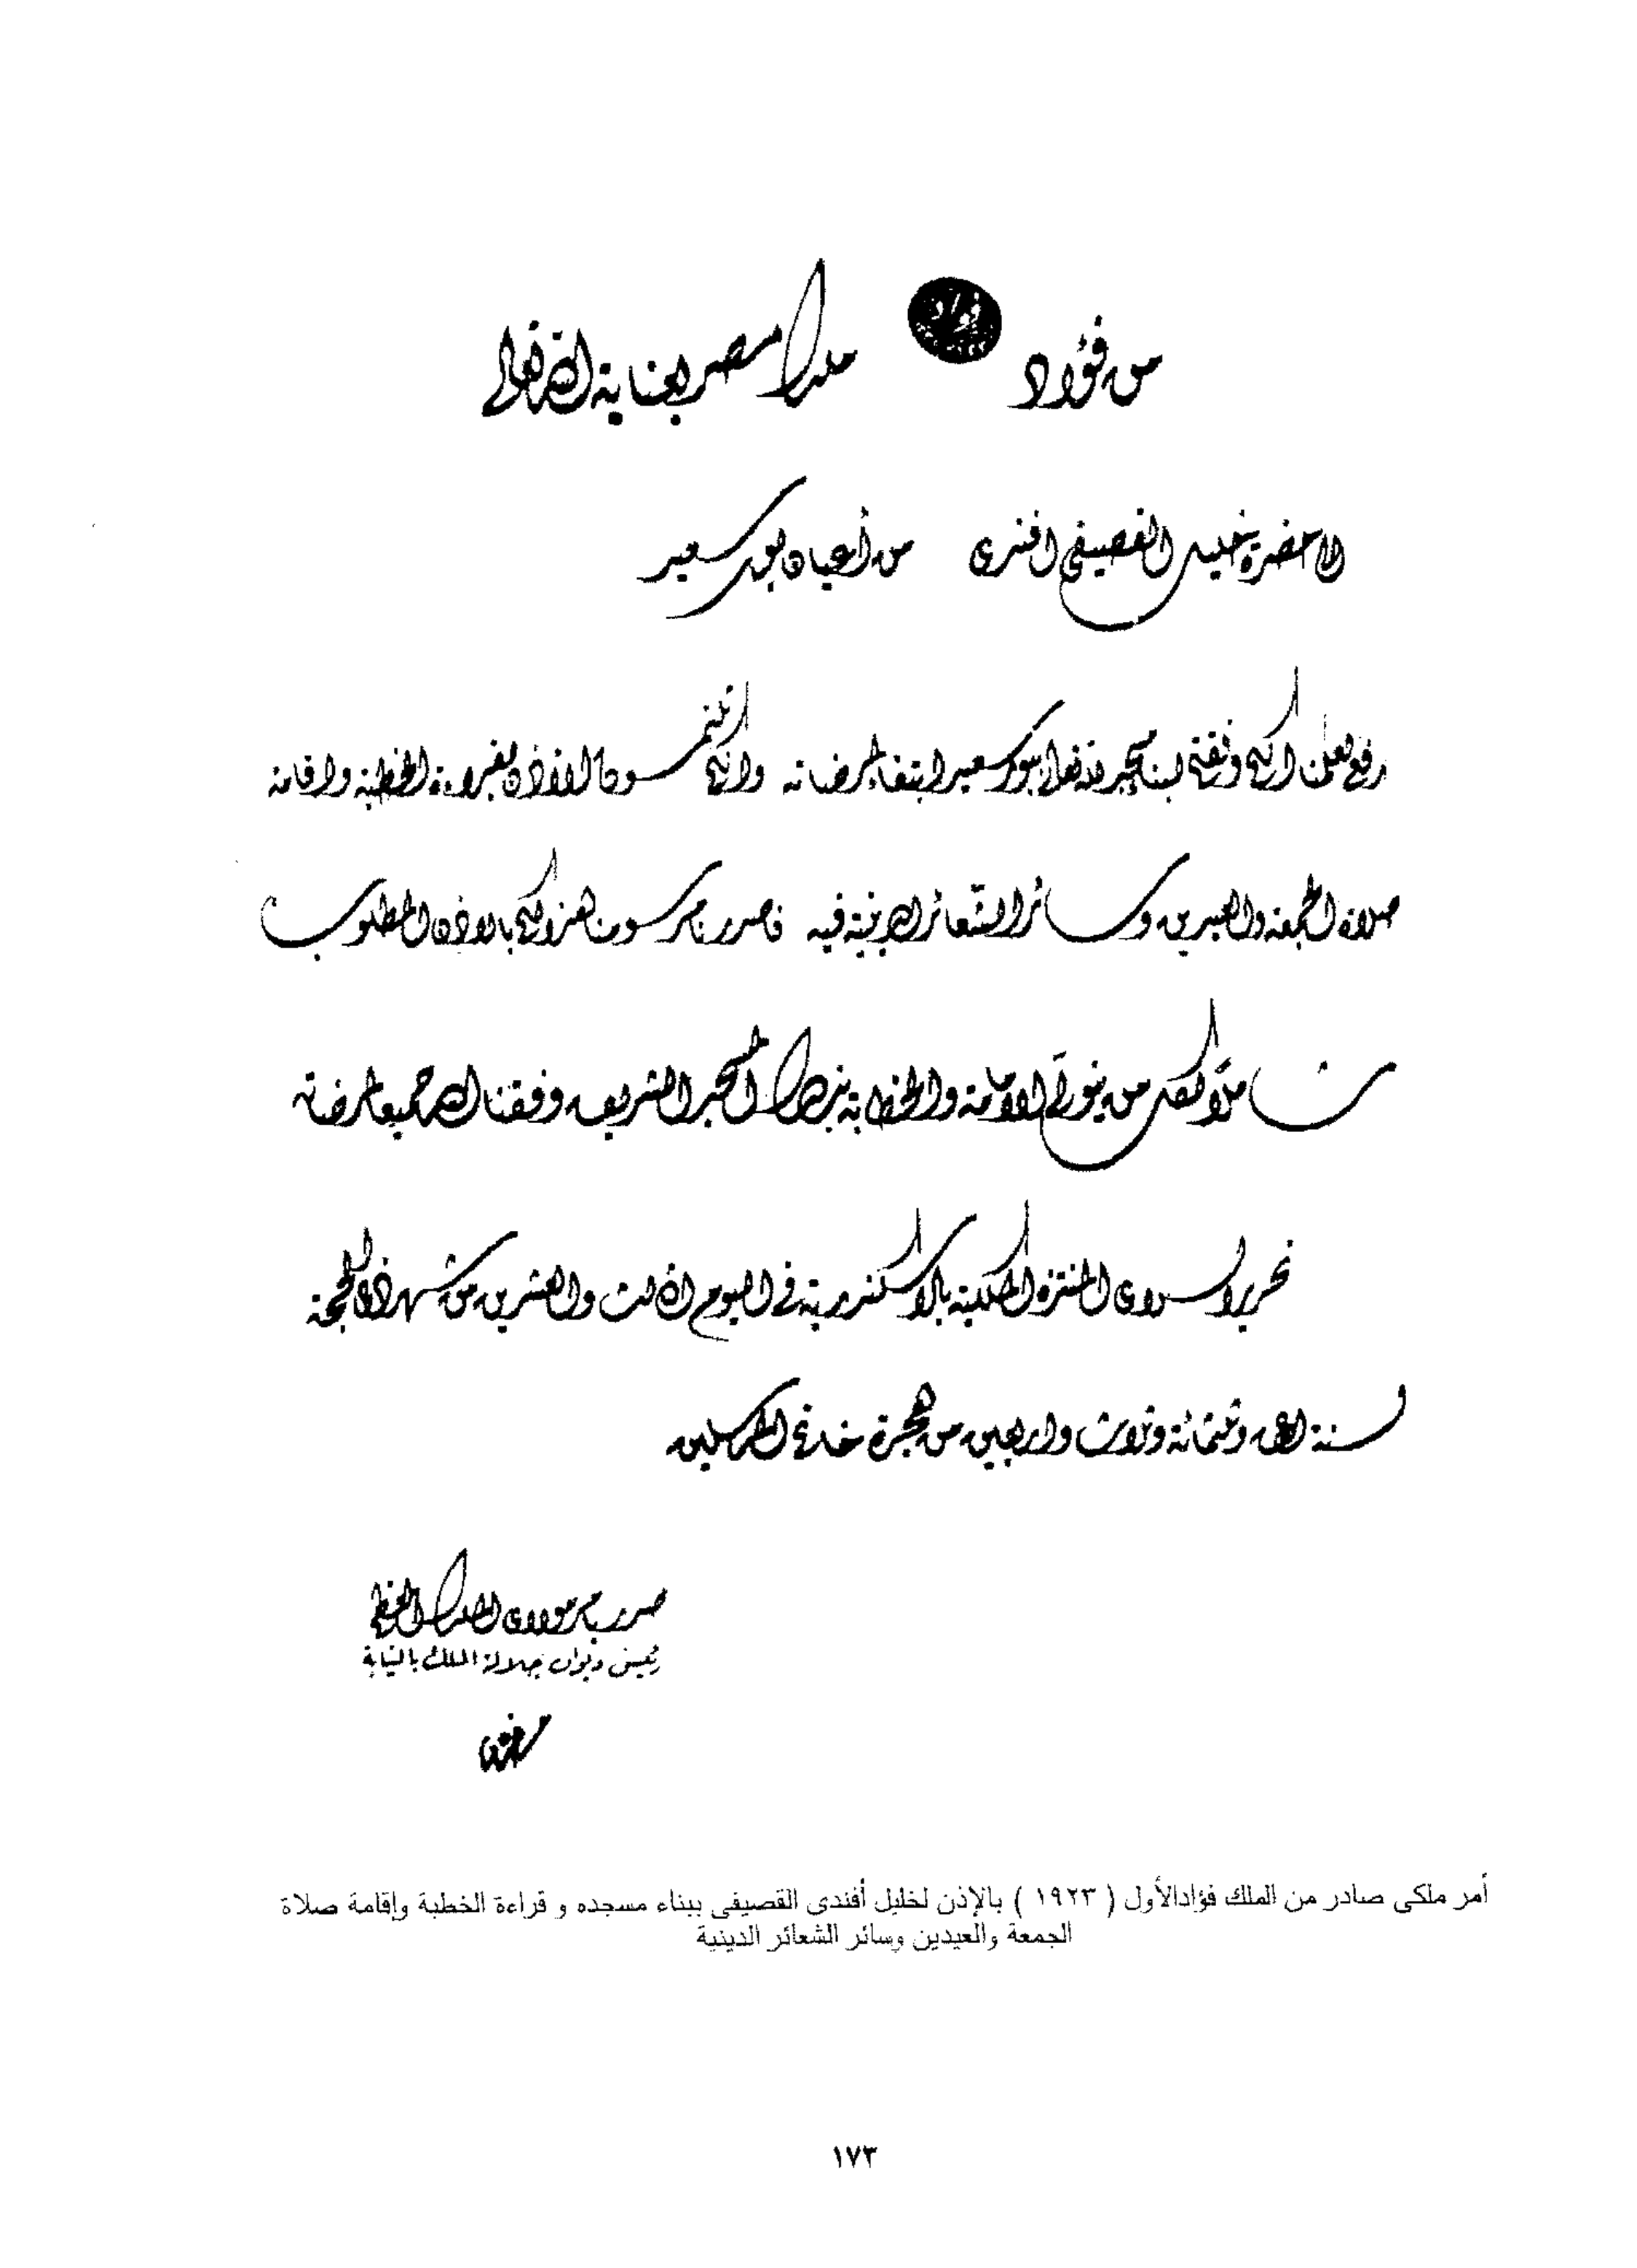 من فؤاد ملك مصر بعناية الله تعالى
فؤاد
إلى حضرة خليل القصيفى افندى من أعيان بور سعيد
رفع لعلمنا انكم وفقتم لبناء مسجد لله تعالى ببور سعيد ابتغاء لمرضاته وانكم تلتمسون الاذن بقراءة الخطبة واقامة
صلاة الجمعة والعيدين وسائر الشعائر الدينية فيه فاصدرنا مرسومنا هذا اليكم بالاذن المطلوب
لكل من يتولى الامامة والخطابة بذلك المسجد الشريف وفقنا الله جميعا لمرضاته
تحريرا بسراى المنتزه الملكية بالاسكندرية فى اليوم الثالث والعشرين من شهر ذى الحجة
لسنة الف وثلثمائة وثلاث واربعين من هجرة خاتم المرسلين
صدر بامر مولاى الملك المعظم
رئيس ديوان جلالة الملك بالنيابة
أمر ملكى صادر من الملك فؤادالأول ( ١٩٢٣ ) بالإذن لخليل أفندى القصيفى ببناء مسجده و قراءة الخطبة وإقامة صلاة
الجمعة والعيدين وسائر الشعائر الدينية
١٧٣